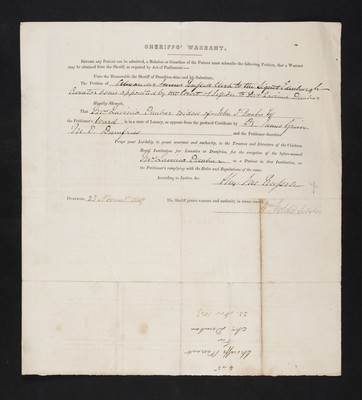 SHERIFFS' WARRANT.
BEFORE any Person can be admitted, a Relation or Guardian of the Patient must subscribe the following Petition, that a Warrant
may be obtained from the Sheriff, as required by Act of Parliament:—
Unto the Honourable the Sheriff of Dumfries-shire and his Substitutes,
The Petition of Alexander James Clerk to the Signet Edinburgh
Curator bonis appointed by the Court of Session to Mrs Dunbar
Humbly Sheweth,
That Mrs Dunbar Widow of John Dunbar Esq
the Petitioner's Ward is in a state of Lunacy, as appears from the prefixed Certificate by Dr. James
M. D. Dumfries and the Petitioner therefore
Prays your Lordship to grant warrant and authority, to the Trustees and Directors of the Crichton
Royal Institution for Lunatics at Dumfries, for the reception of the before-named
Mrs Dunbar as a Patient in that Institution, on
the Petitioner's complying with the Rules and Regulations of the same.
According to Justice, &c.
Alex Jas
DUMFRIES, 23 November
The Sheriff grants warrant and authority in terms
Sheriffs Warrant
For
Mrs Dunbar
23 Nov